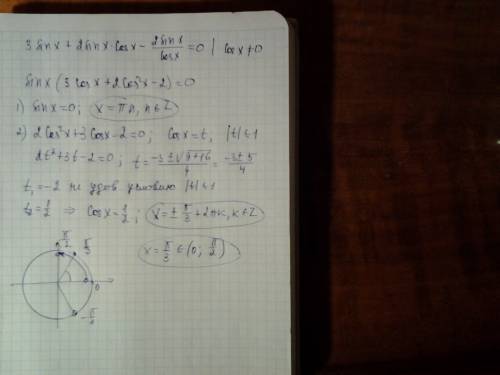 3 sin x + 2 sin x · cos x − 2 sin x / cos x = 0 | cos x ≠ 0
sin x (3 cos x + 2 cos² x − 2) = 0
1) sin x = 0; x = πn, n ∈ Z
2) 2 cos² x + 3 cos x − 2 = 0; cos x = t, |t| ≤ 1
2t² + 3t − 2 = 0; t = (−3 ± √(9+16)) / 4 = (−3 ± 5) / 4
t₁ = −2 не удов условию |t| ≤ 1
t₂ = 1/2 ⇒ cos x = 1/2; x = ± π/3 + 2πк, к ∈ Z
x = π/3 ∈ (0; π/2)
π/2 π/3
0